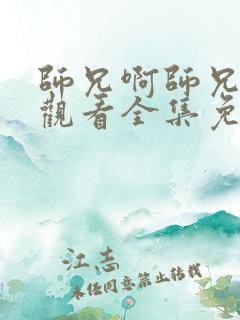 師兄啊師兄
觀看全集免
江志
未经同意禁止转载